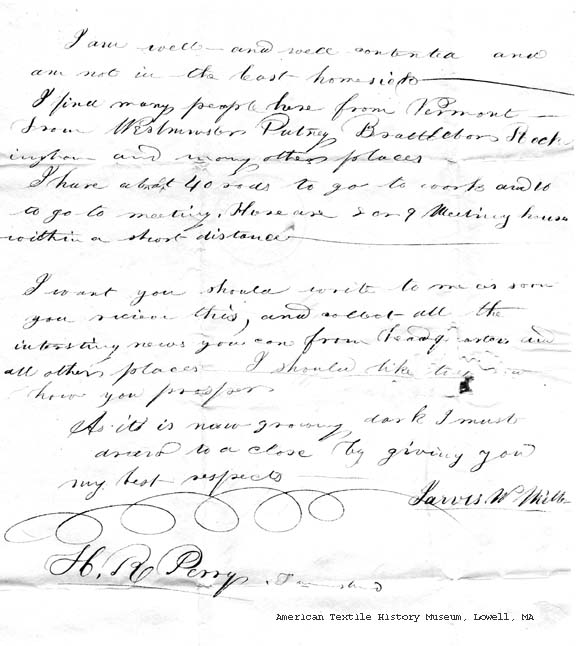 I am well and well contented and
am not in the least homesick
I find many people here from Vermont
From Westminster Putney Brattleboro Rock
ingham and many other places
I have about 40 rods to go to work and 10
to go to meeting. There are 8 or 9 Meeting houses
within a short distance
I want you should write to me as soon
you recieve this, and collect all the
intersting news you can from and
all other places I should like to
how you prosper
As it is now growing dark I must
draw to a close by giving you
my best respects
Jarvis W.
H. R. Perry
American Textile History Museum, Lowell, MA